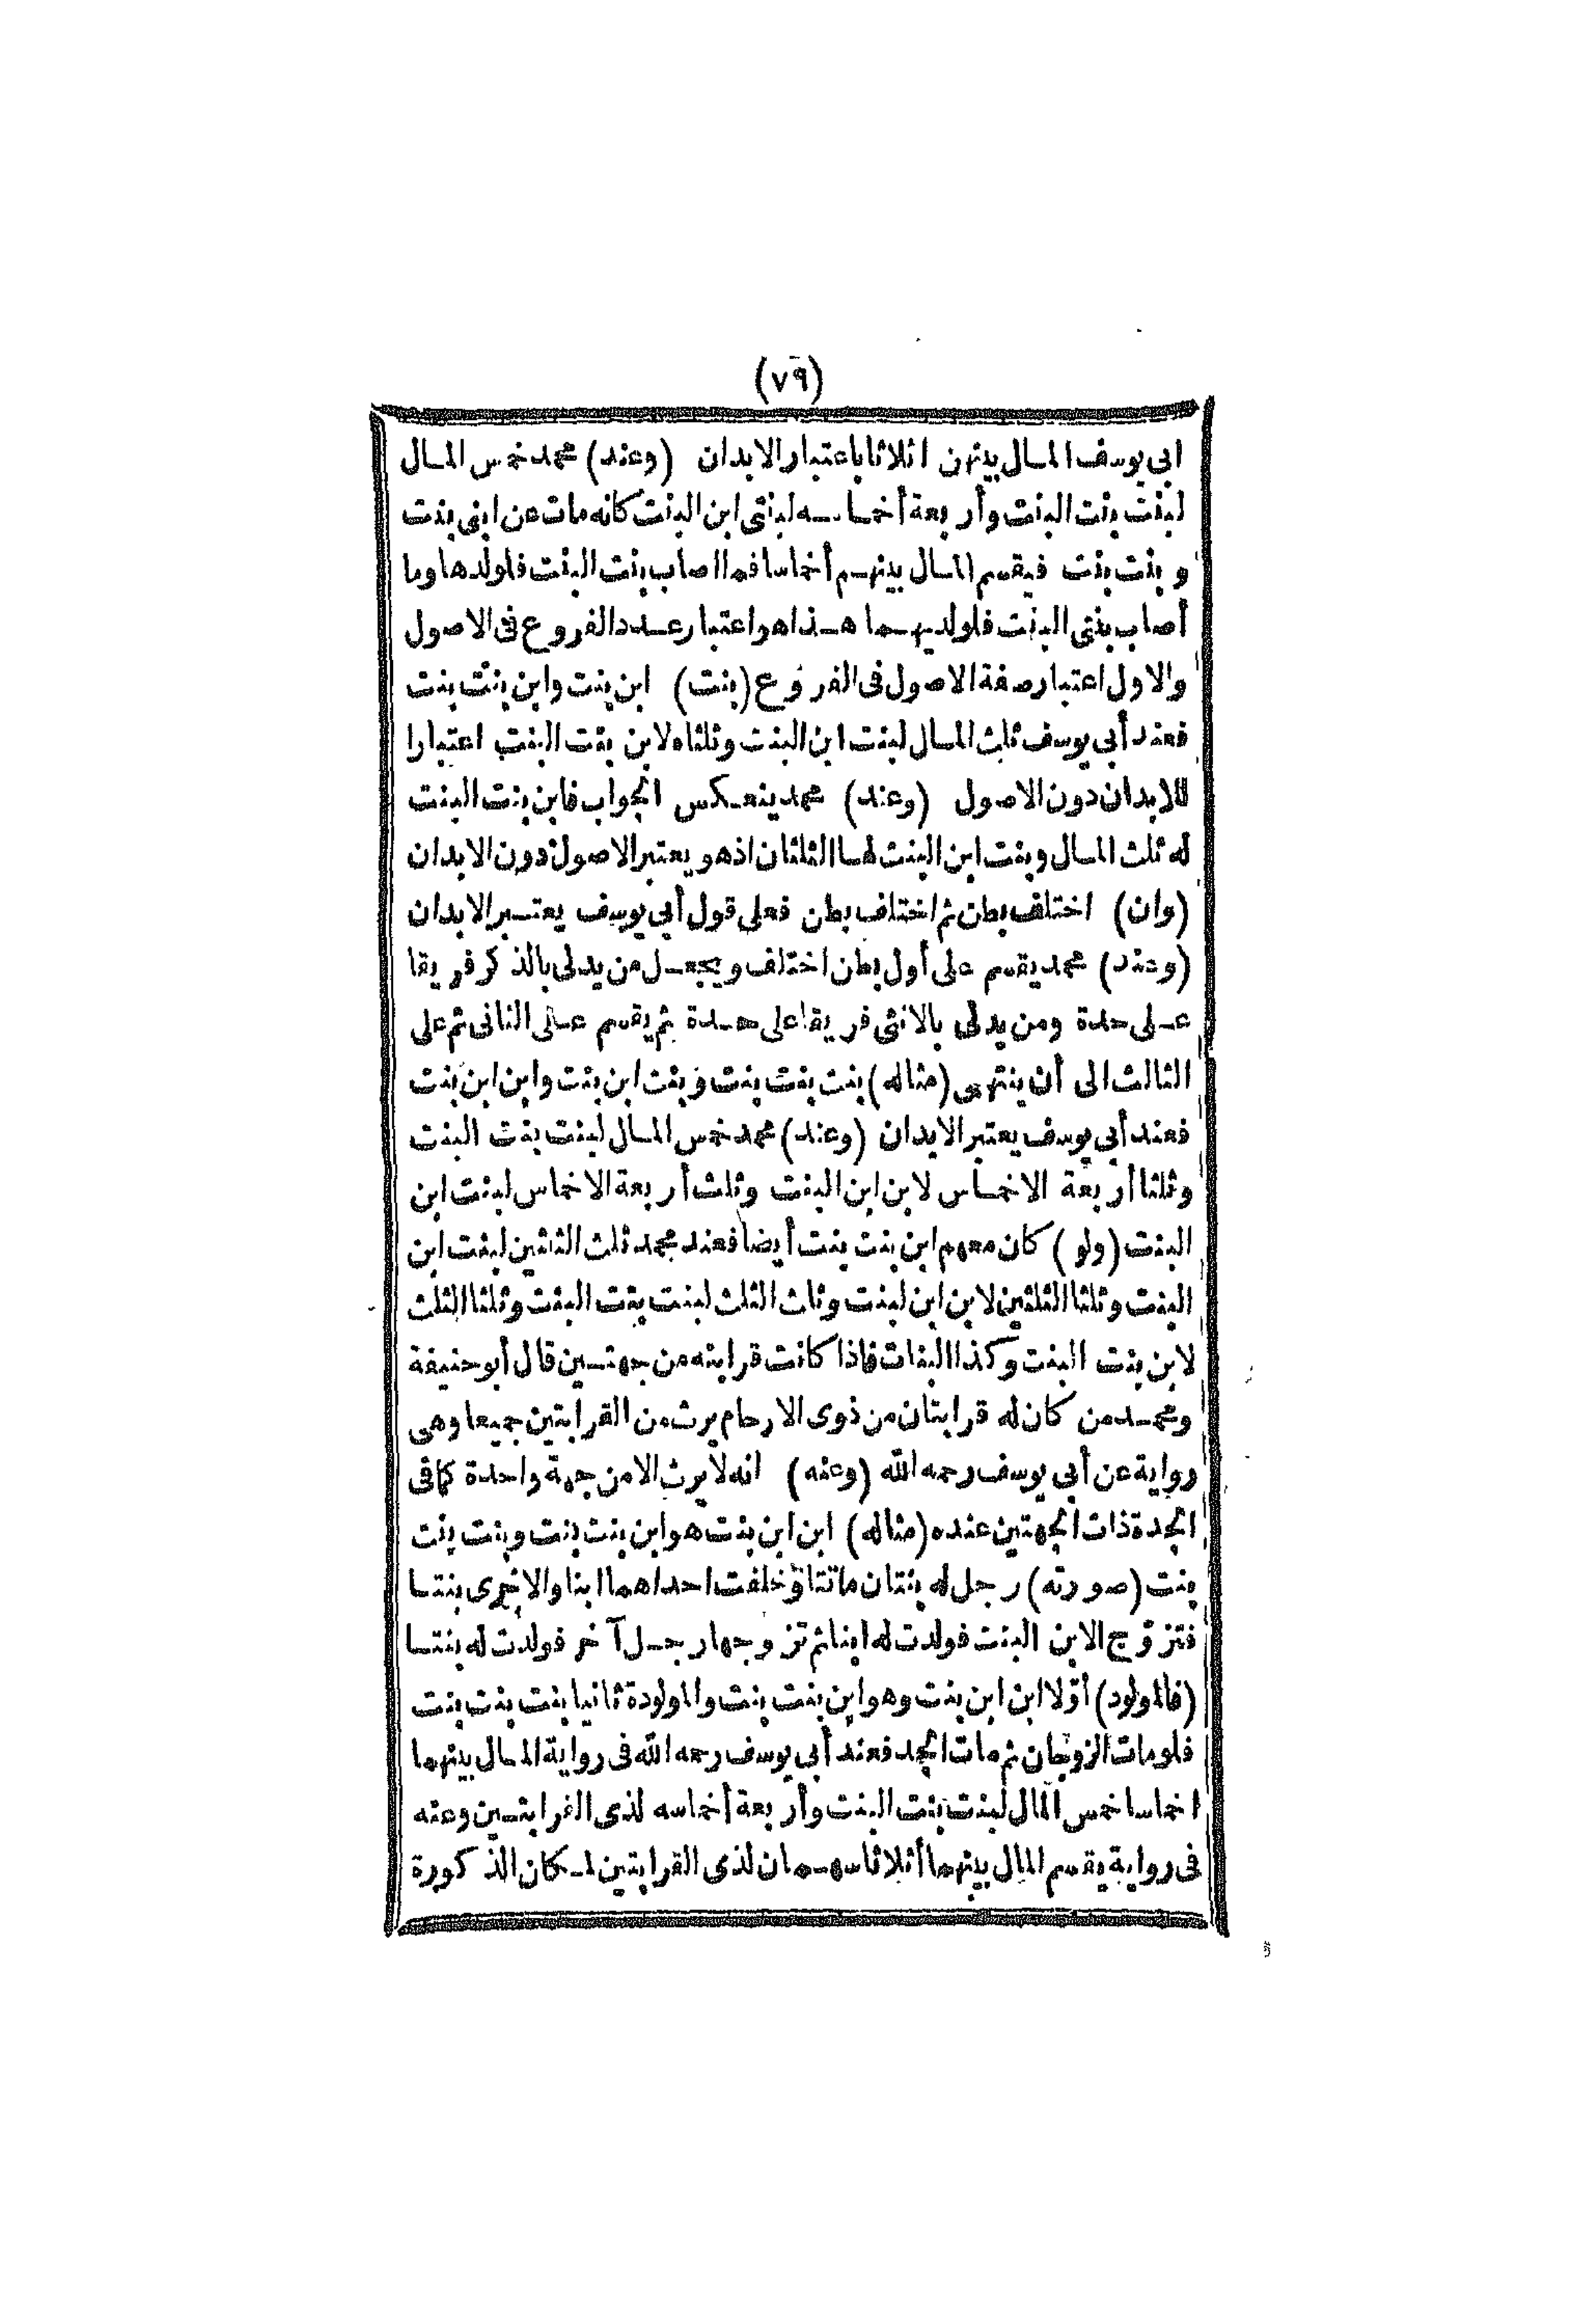 (٧٩)
ابى يوسف المال بينهن اثلاثا باعتبار الابدان (وعند) محمد خمس المال
لبنت بنت البنت وأربعة أخماسه لبنتى ابن البنت كانه مات عن ابنى بنت
وبنت بنت فيقسم المال بينهم أخماسا فما اصاب بنت البنت فلولدها وما
أصاب بنتى البنت فلولديهما هذا هو اعتبار عدد الفروع فى الاصول
والاول اعتبار صفة الاصول فى الفروع (بنت) ابن بنت وابن بنت بنت
فعند أبى يوسف ثلث المال لبنت ابن البنت وثلثاه لابن بنت البنت اعتبارا
للابدان دون الاصول (وعند) محمد ينعكس الجواب فابن بنت البنت
له ثلث المال وبنت ابن البنت لها الثلثان اذ هو يعتبر الاصول دون الابدان
(وان) اختلف بطن ثم اختلف بطن فعلى قول أبى يوسف يعتبر الابدان
(وعند) محمد يقسم على أول بطن اختلف ويجعل من يدلى بالذكر فريقا
على حدة ومن يدلى بالانثى فريقا على حدة ثم يقسم على الثانى ثم على
الثالث الى أن ينتهى (مثاله) بنت بنت بنت وبنت ابن بنت وابن ابن بنت
فعند أبى يوسف يعتبر الابدان (وعند) محمد خمس المال لبنت بنت البنت
وثلثا أربعة الاخماس لابن ابن البنت وثلث أربعة الاخماس لبنت ابن
البنت (ولو) كان معهم ابن بنت بنت أيضا فعند محمد ثلث الثلثين لبنت ابن
البنت وثلثا الثلثين لابن ابن لبنت وثلث الثلث لبنت بنت البنت وثلثا الثلث
لابن بنت البنت وكذا البنات فاذا كانت قرابته من جهتين قال أبو حنيفة
ومحمد من كان له قرابتان من ذوى الارحام يرث من القرابتين جميعا وهى
رواية عن أبى يوسف رحمه الله (وعنه) انه لا يرث الا من جهة واحدة كما فى
الجدة ذات الجهتين عنده (مثاله) ابن ابن بنت هو ابن بنت بنت وبنت بنت
بنت (صورته) رجل له بنتان ماتتا وخلفت احداهما ابنا والاخرى بنتا
فتزوّج الابن البنت فولدت له ابنا ثم تزوجها رجل آخر فولدت له بنتا
(فالمولود) أوّلا ابن ابن بنت وهو ابن بنت بنت والمولودة ثانيا بنت بنت بنت
فلو مات الزوجان ثم مات الجد فعند أبى يوسف رحمه الله فى رواية المال بينهما
اخماسا خمس المال لبنت بنت البنت وأربعة أخماسه لذى القرابتين وعنه
فى رواية يقسم المال بينهما أثلاثا سهمان لذى القرابتين لمكان الذكورة